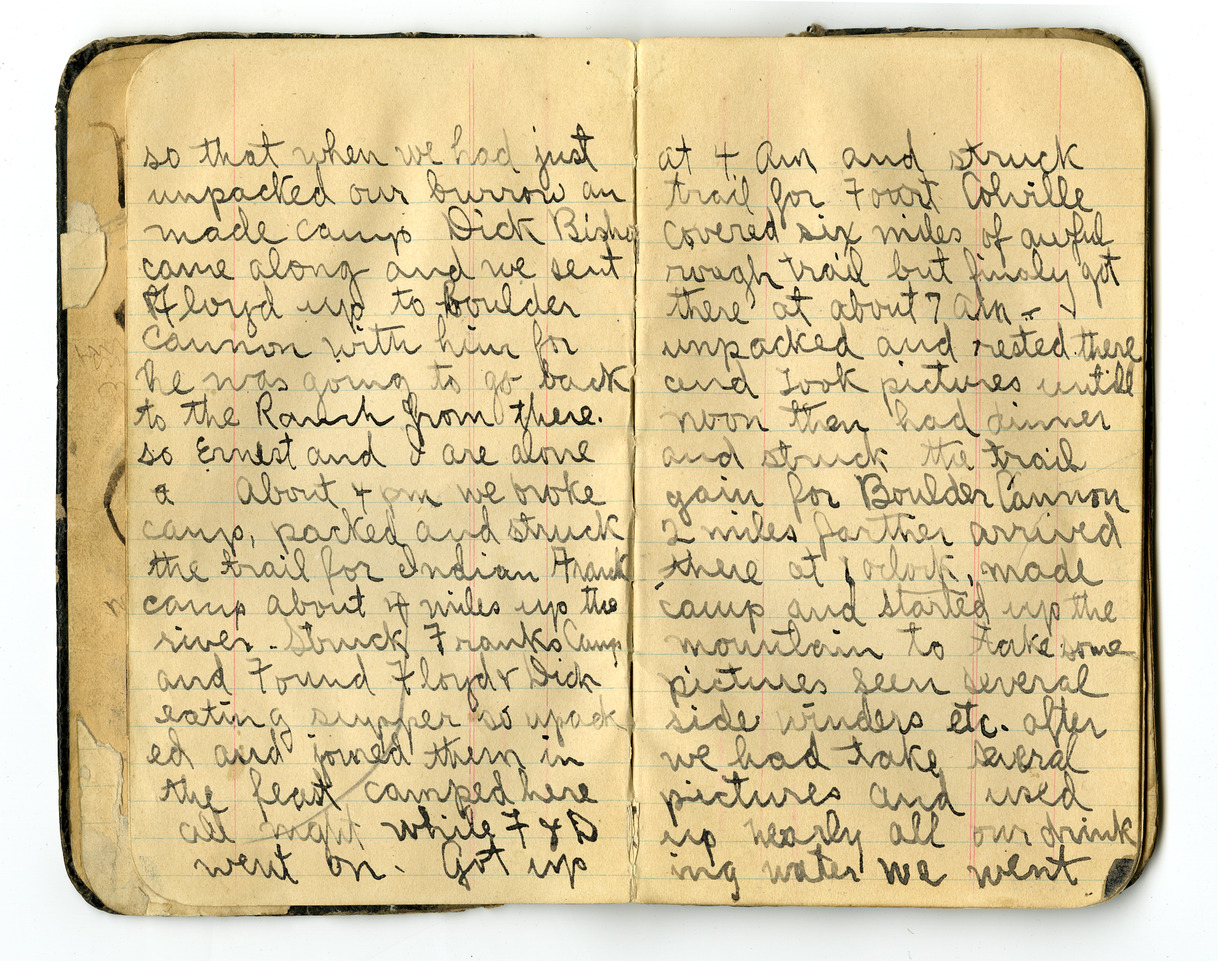 so that when we had just
unpacked our burrow an
made camp Dick Bisho
came along and we sent
Floyd up to Boulder
Cannon with him for
he was going to go back
to the Ranch from there.
so Ernest and I are alone
a About 4 pm we broke
camp, packed and struck
the trail for Indian Frank
camp about 4 miles up the
river. Struck Franks Camp
and Found Floyd & Dick
eating supper so upack
ed and joined them in
the feast camped here
all night while F & D
went on. Got up
at 4 Am and struck
trail for Foort Colville
covered six miles of awful
rough trail but finaly got
there at about 7 Am -
unpacked and rested there
and Took pictures untill
noon then had dinner
and struck the trail
gain for Boulder Cannon
2 miles farther arrived
there at 1 oclock, made
camp and started up the
mountain to take some
pictures seen several
side winders etc. after
we had take several
pictures and used
up nearly all our drink
ing water we went